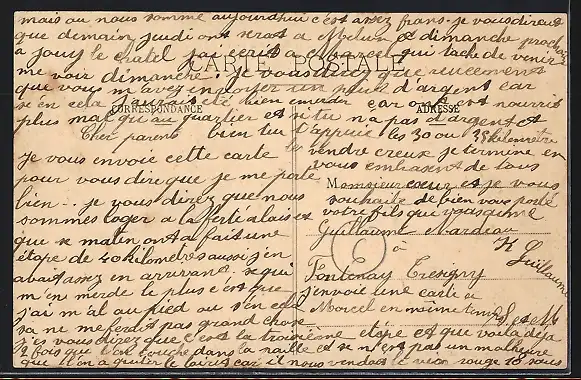 mais au nous somme aujourdhui c'est assez frans. je vous dirait
que demain jeudi ont serat a Melun et dimanche prochain
a jouy le chatel j'ai ecrit a Marcel qui tache de venir
me voir dimanche. je vous direz que
CARTE POSTALE
que vous m'avez un peu d'argent car
CORRESPONDANCE
ADRESSE
plus mal qu'au quartier et si tu n'a pas d'argent et
Cher parent
bien tu t'appuie les 30 ou 35 kilometre
Je vous envoie cette carte
le vendre creux je termine en
pour vous dire que je me porte
vous embrasent de tous
bien. je vous direz que nous
Monsieur
coeur et je vous
souhaite de bien vous porté
sommes loger a la ferte alais et
votre fils qui vous aime
Guillaume Nardeau
que se matin ont a fait une
étape de 40 kilometres aussi j'en
à
Guillaume
avait assez en arrivant se qui
Fontenay Tresigny
m'en merde le plus c'est que
j'envoie une carte a
j'ai mal au pied ou s'en cela
Marcel en même temps
S et M
sa ne me ferait pas grand chose
j'es vous direz que c'est la troisieme étape et que voila déja
2 fois que l'on couche dans la paille et se n'est pas un malheure
que l'on a quiter le car il nous vendait le vin rouge 18 sous